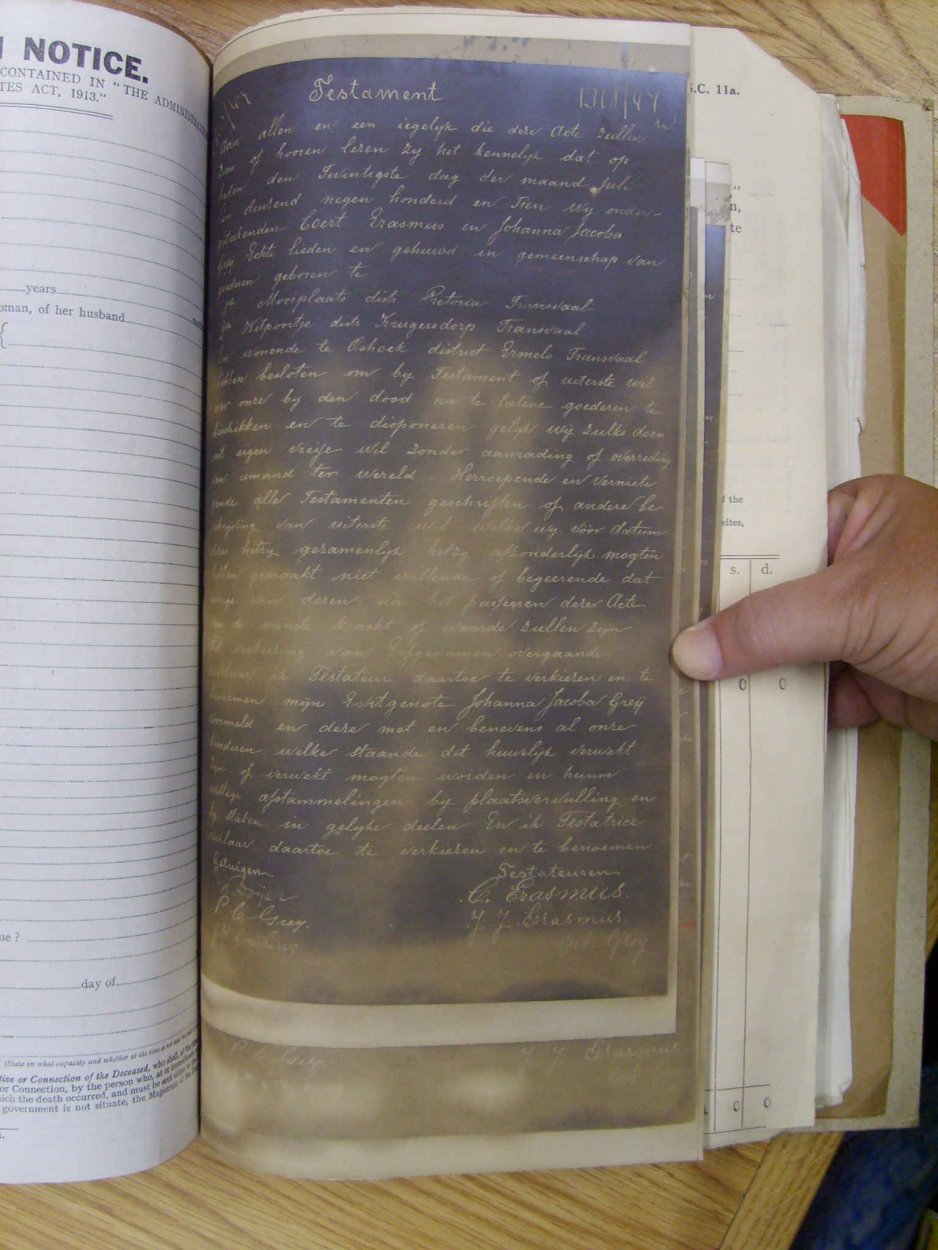 NOTICE.
CONTAINED IN "THE ADMINISTRATION
TES ACT, 1913."
years
oman, of her husband
ue ?
day of
(State in what capacity and whether at the time
tive or Connection of the Deceased, who shall,
or Connection, by the person who, at or
hich the death occurred, and must be sent
government is not situate, the Magistrate of the
Testament
1318/47
Aan allen en een iegelyk die deze Acte zullen
zien of hooren lezen Zy het kennelyk dat op
heden den Twintigste dag der maand Juli
Een duizend negen honderd en Tien Wy onder-
geteekenden Coert Erasmus en Johanna Jacoba
Grey Echte lieden en gehuwd in gemeenschap van
goederen geboren te
Mooiplaats dist Pretoria Transvaal
Witpoortje dist Krugersdorp Transvaal
wonende te Oshoek district Ermelo Transvaal
hebben besloten om by Testament of uiterste wil
over onze by den dood na te latene goederen te
beschikken en te disponeren gelyk wij zulks doen
uit eigen vreije wil Zonder aanrading of overreding
van iemand ter wereld. Herroepende en verniete
gende alle Testamenten geschriften of andere be
schrijving van uiterste wil welke wy vóór datum
dezer hetzy gezamenlyk hetzy afzonderlyk mogten
hebben gemaakt niet willende of begeerende dat
eenige van deren na het passeeren dezer Acte
van de minste kracht of waarde zullen zijn
verkiezing van Erfgenamen overgaande
verklaar ik Testateur daartoe te verkiezen en te
benoemen mijn Echtgenote Johanna Jacoba Grey
voormeld en deze met en benevens al onze
kinderen welke staande dit huwelyk verwekt
zyn of verwekt mogten worden en hunne
wettige afstammelingen by plaatsvervulling en
by staken in gelyke deelen En ik Testatrice
verklaar daartoe te verkiezen en te benoemen
Getuigen
Testateuren
C. Erasmus.
P C Grey.
J J Erasmus.
Geb. Grey
P C Grey
J J Erasmus
.C. 11a.
te
f the
s. d.
0 0
0 0